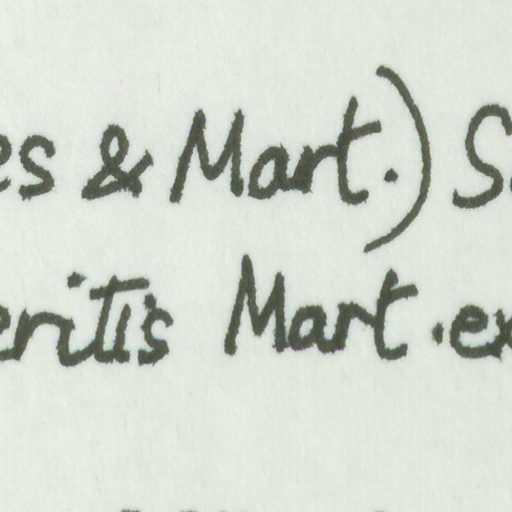 es & Mart.) S
eritis Mart. ex